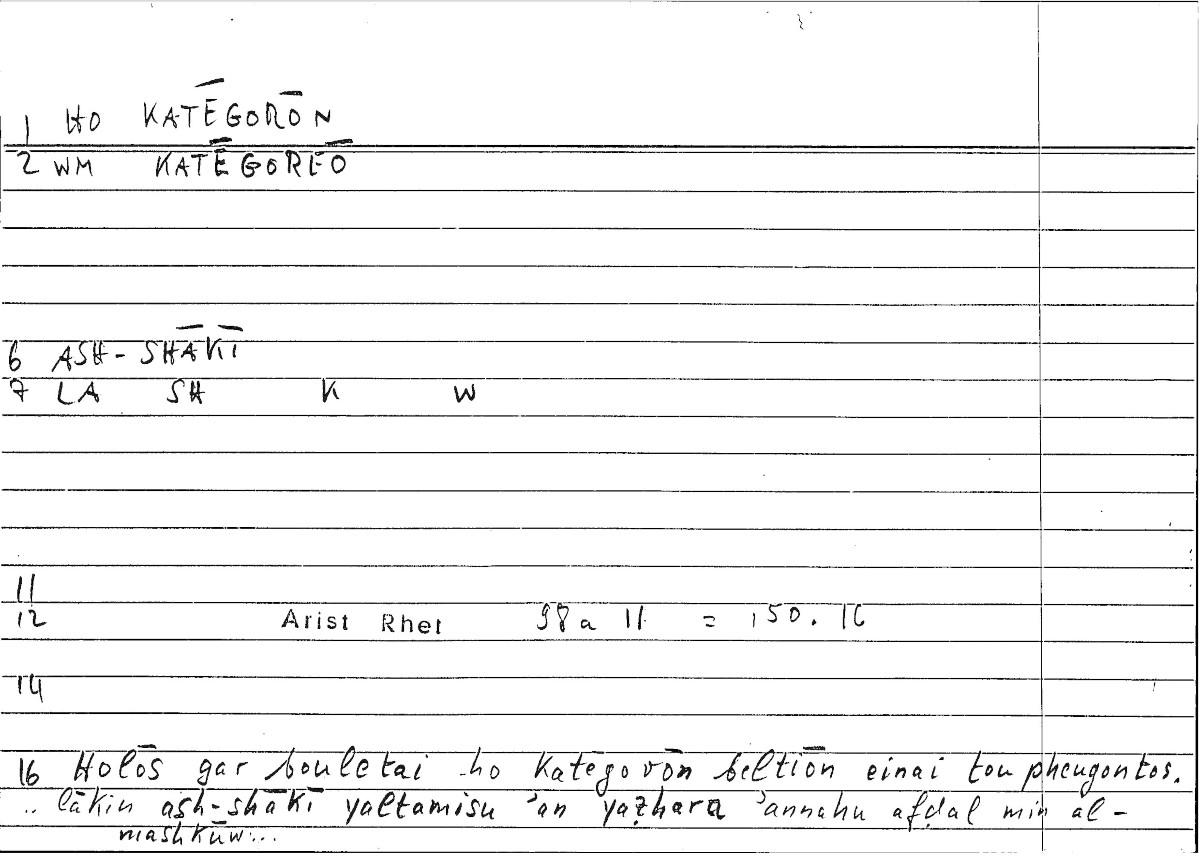 1 HO KATĒGORŌN
2 WM KATĒGOREŌ
6 ASH-SHĀKĪ
7 LA SH K W
11
12 Arist Rhet 98a 11 = 150.16
14
16 Holōs gar bouletai ho Katēgorōn beltiōn einai tou pheugontos.
.. lākin ash-shākī yaltamisu 'an yaẓhara 'annahu afḍal min al-
mashkūw...